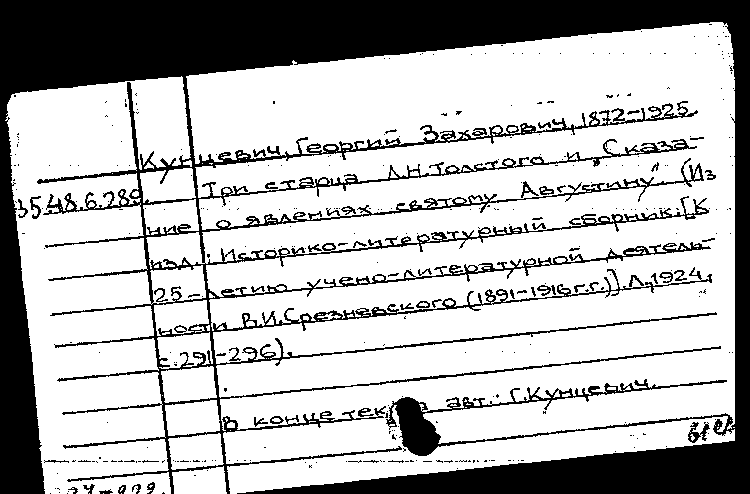 Кунцевич, Георгий Захарович, 1872-1925.
3548.6.289. Три старца Л.Н.Толстого и „Сказа-
ние о явлениях святому Августину". (Из
изд.: Историко-литературный сборник. [К
25-летию учено-литературной деятель-
ности В.И.Срезневского (1891-1916гг.)]. Л., 1924,
с. 291-296).
В конце авт.: Г.Кунцевич.